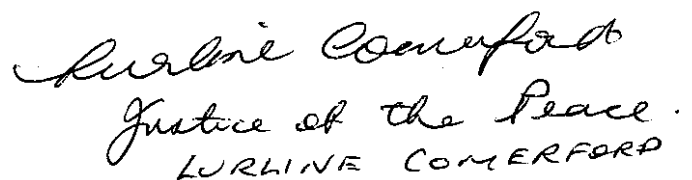 Lurline Comerford
Justice of the Peace.
LURLINE COMERFORD